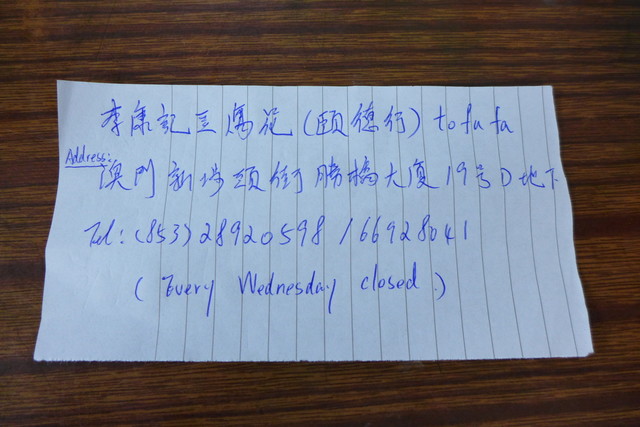 李康記豆腐花(頤德行) tofufa
Address:
澳門新埗頭街勝橋大廈19号D地下
Tel: (853) 28920598 / 66928041
( Every Wednesday closed )